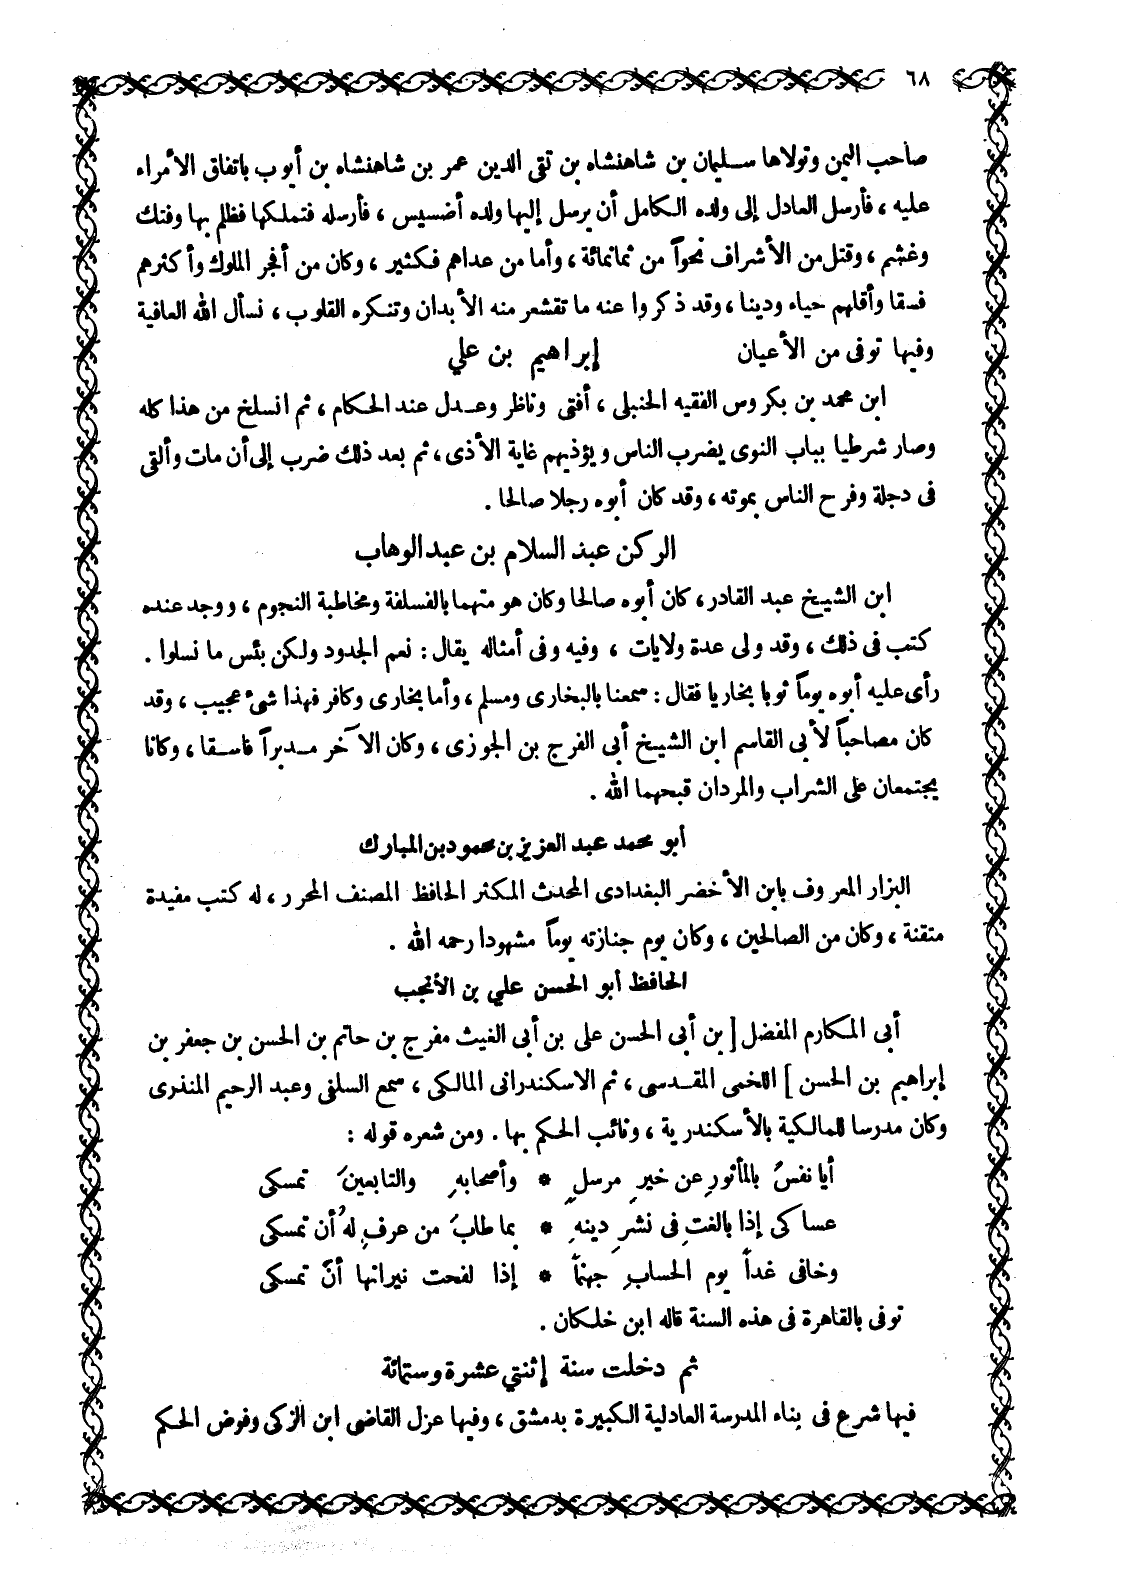 ٦٨
صاحب اليمن وتولاها سليمان بن شاهنشاه بن تقى الدين عمر بن شاهنشاه بن أيوب باتفاق الأمراء
عليه ، فأرسل العادل إلى ولده الكامل أن يرسل إليها ولده أضسيس ، فأرسله فتملكها فظلم بها وفتك
وغشم ، وقتل من الأشراف نحواً من ثمانمائة ، وأما من عداهم فكثير ، وكان من أفجر الملوك وأكثرهم
فسقا وأقلهم حياء ودينا ، وقد ذكروا عنه ما تقشعر منه الأبدان وتنكره القلوب ، نسأل الله العافية
وفيها توفى من الأعيان إبراهيم بن علي
ابن محمد بن بكروس الفقيه الحنبلى ، أفتى وناظر وعدل عند الحكام ، ثم انسلخ من هذا كله
وصار شرطيا بباب النوى يضرب الناس ويؤذيهم غاية الأذى ، ثم بعد ذلك ضرب إلى أن مات وألقى
فى دجلة وفرح الناس بموته ، وقد كان أبوه رجلا صالحا .
الركن عبد السلام بن عبد الوهاب
ابن الشيخ عبد القادر ، كان أبوه صالحا وكان هو متهما بالفسلفة ومخاطبة النجوم ، ووجد عنده
كتب فى ذلك ، وقد ولى عدة ولايات ، وفيه وفى أمثاله يقال : نعم الجدود ولكن بئس ما نسلوا .
رأى عليه أبوه يوماً ثوبا بخاريا فقال : سمعنا بالبخارى ومسلم ، وأما بخارى وكافر فهذا شىء عجيب ، وقد
كان مصاحباً لأبى القاسم ابن الشيخ أبى الفرج بن الجوزى ، وكان الآخر مدبراً فاسقا ، وكانا
يجتمعان على الشراب والمردان قبحهما الله .
أبو محمد عبد العزيز بن محمود بن المبارك
البزار المعروف بابن الأخضر البغدادى المحدث المكثر الحافظ المصنف المحرر ، له كتب مفيدة
متقنة ، وكان من الصالحين ، وكان يوم جنازته يوماً مشهودا رحمه الله .
الحافظ أبو الحسن علي بن الأنجب
أبى المكارم المفضل [ بن أبى الحسن على بن أبى الغيث مفرج بن حاتم بن الحسن بن جعفر بن
إبراهيم بن الحسن ] اللخمى المقدسى ، ثم الاسكندرانى المالكى ، سمع السلفى وعبد الرحيم المنذرى
وكان مدرسا للمالكية بالأسكندرية ، ونائب الحكم بها . ومن شعره قوله :
أيا نفسُ بالمأثورِ عن خيرِ مرسلٍ * وأصحابهِ والتابعينَ تمسكى
عساكى إذا بالغتِ فى نشرِ دينهِ * بما طابَ من عرفٍ لهُ أن تمسكى
وخافى غداً يوم الحسابِ جهنماً * إذا لفحت نيرانها أنّ تمسكى
توفى بالقاهرة فى هذه السنة قاله ابن خلكان .
ثم دخلت سنة إثنتي عشرة وستمائة
فيها شرع فى بناء المدرسة العادلية الكبيرة بدمشق ، وفيها عزل القاضى ابن الزكى وفوض الحكم